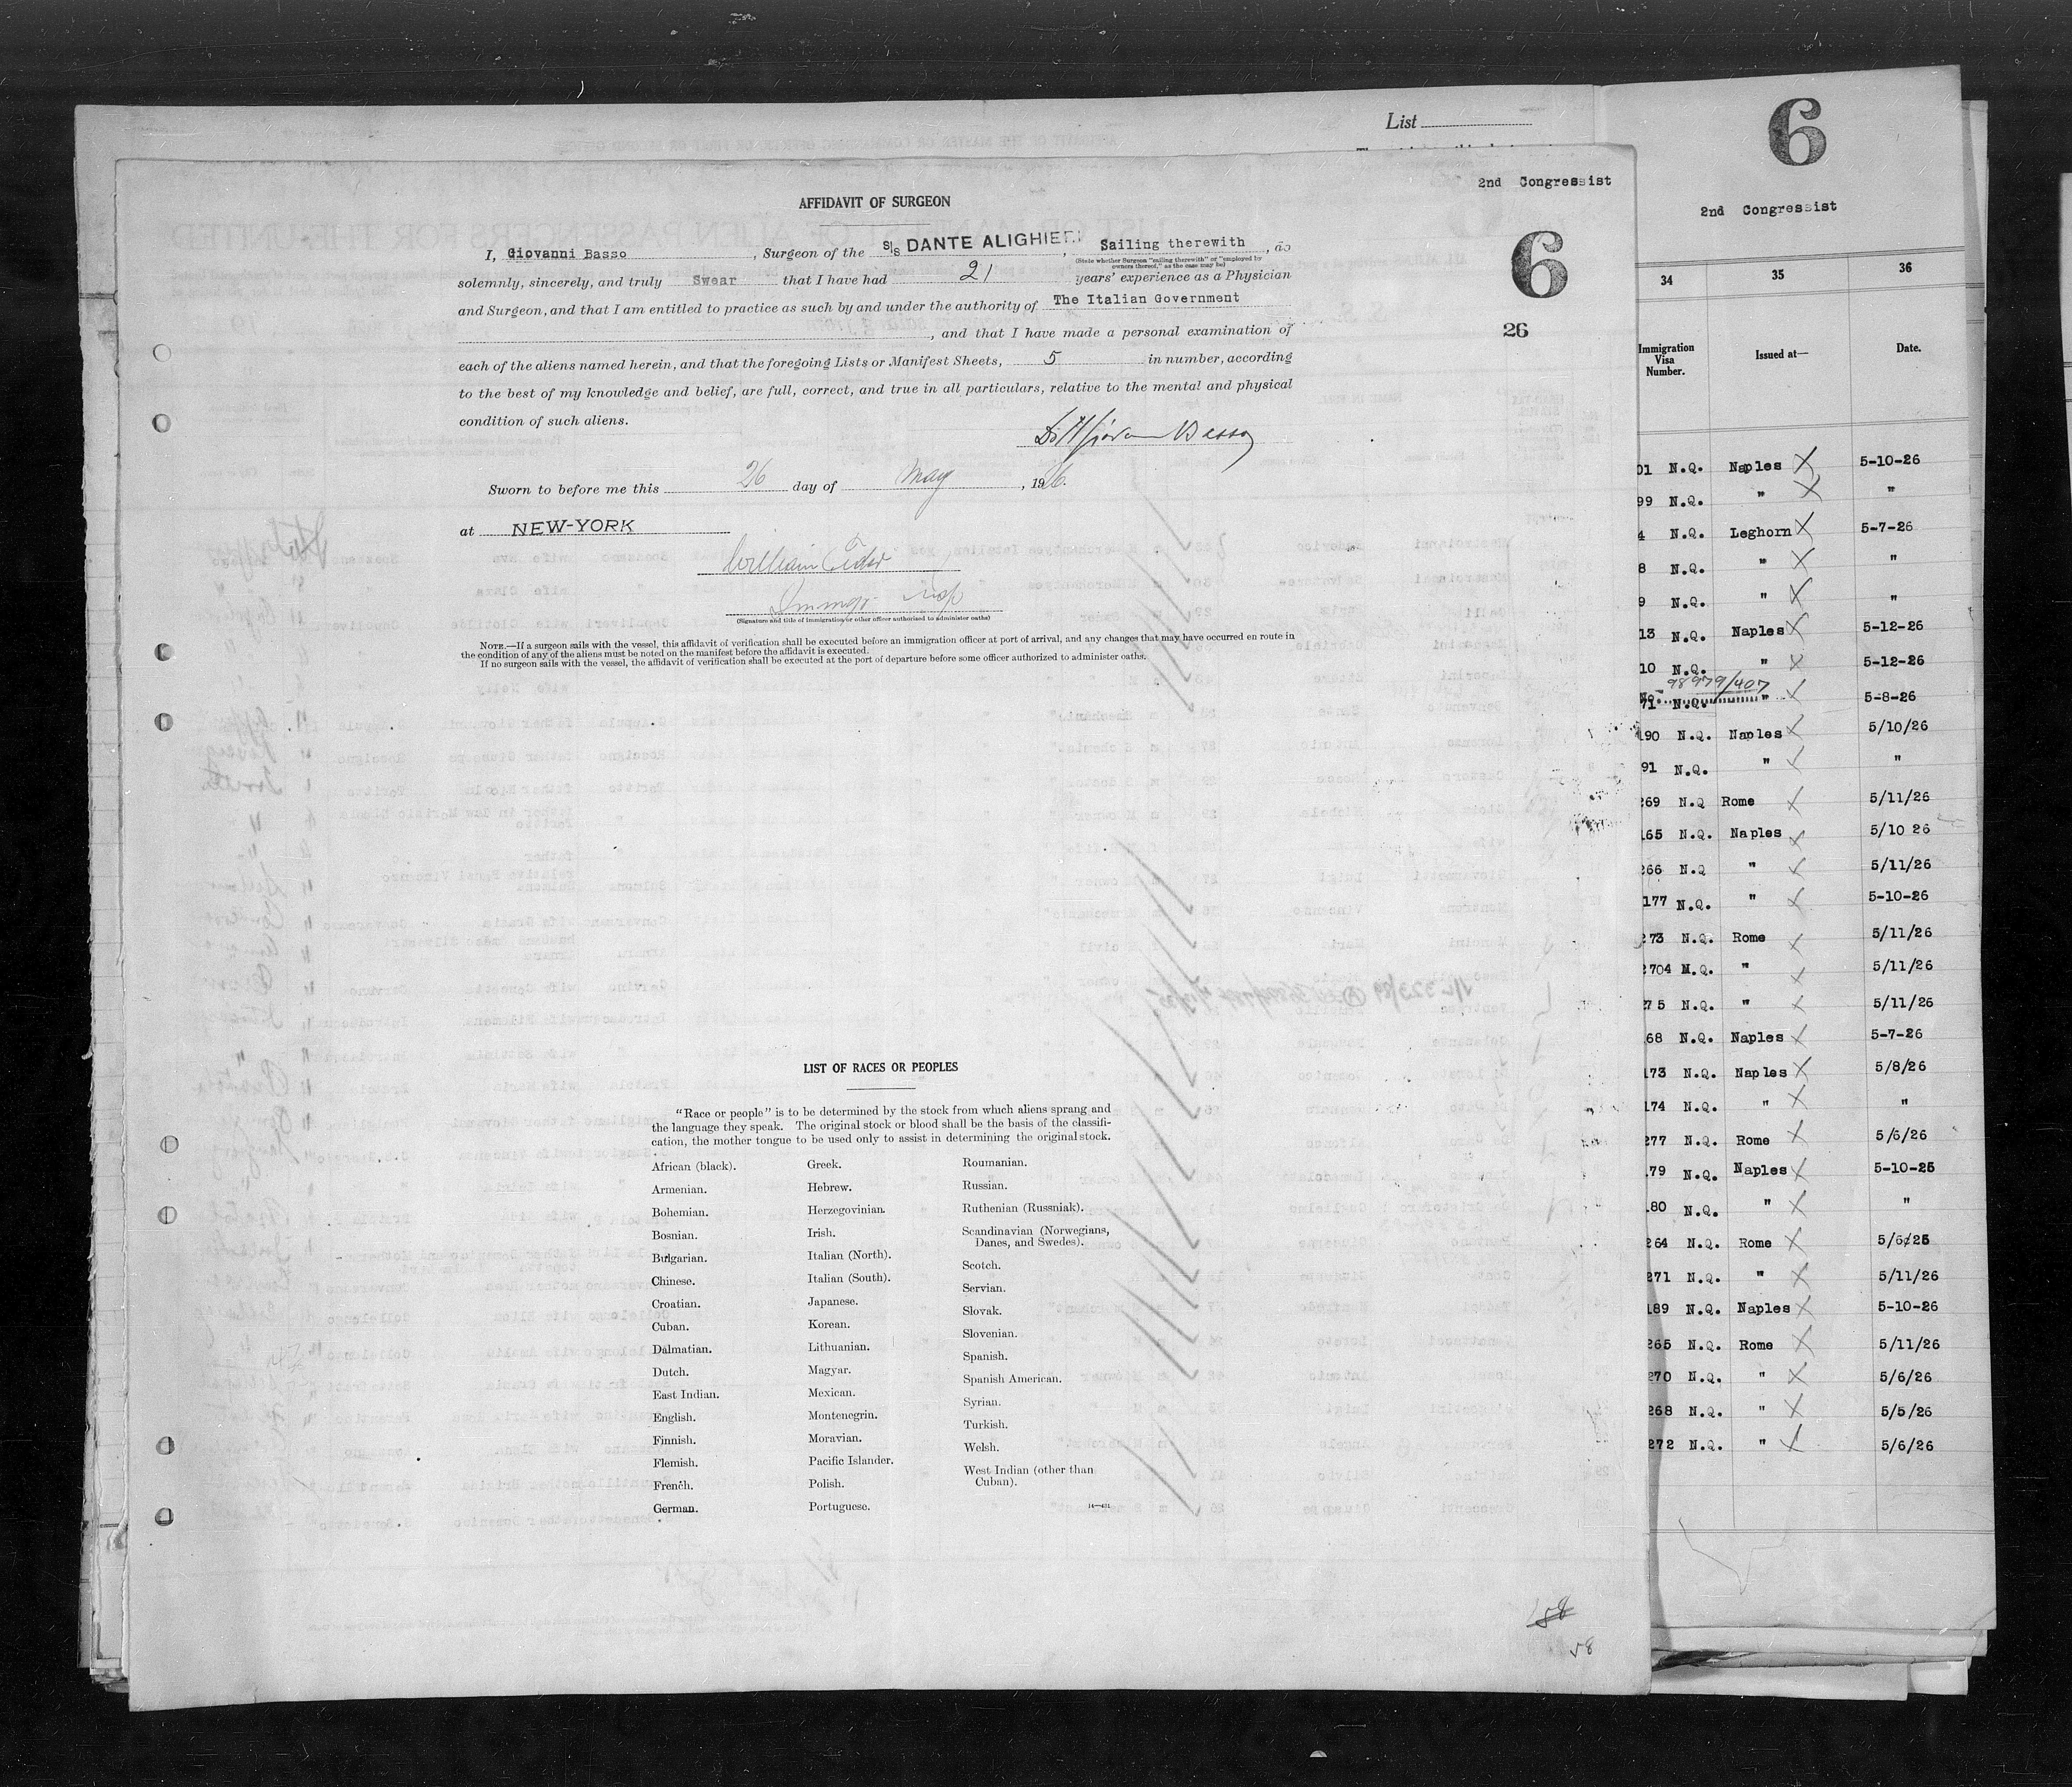 List
6
2nd Congressist
2nd Congressist
6
26
AFFIDAVIT OF SURGEON
I, Giovanni Basso, Surgeon of the S/S DANTE ALIGHIERI, Sailing therewith, do
(State whether Surgeon "sailing therewith" or "employed by owners thereof," as the case may be)
solemnly, sincerely, and truly Swear that I have had 21 years' experience as a Physician
and Surgeon, and that I am entitled to practice as such by and under the authority of The Italian Government
, and that I have made a personal examination of
each of the aliens named herein, and that the foregoing Lists or Manifest Sheets, 5 in number, according
to the best of my knowledge and belief, are full, correct, and true in all particulars, relative to the mental and physical
condition of such aliens.
Basso
Sworn to before me this 26 day of May, 1926.
at NEW-YORK
William
Immgr Insp
(Signature and title of immigration or other officer authorized to administer oaths)
NOTE.—If a surgeon sails with the vessel, this affidavit of verification shall be executed before an immigration officer at port of arrival, and any changes that may have occurred en route in
the condition of any of the aliens must be noted on the manifest before the affidavit is executed.
If no surgeon sails with the vessel, the affidavit of verification shall be executed at the port of departure before some officer authorized to administer oaths.
LIST OF RACES OR PEOPLES
"Race or people" is to be determined by the stock from which aliens sprang and
the language they speak. The original stock or blood shall be the basis of the classifi-
cation, the mother tongue to be used only to assist in determining the original stock.
African (black).
Armenian.
Bohemian.
Bosnian.
Bulgarian.
Chinese.
Croatian.
Cuban.
Dalmatian.
Dutch.
East Indian.
English.
Finnish.
Flemish.
French.
German.
Greek.
Hebrew.
Herzegovinian.
Irish.
Italian (North).
Italian (South).
Japanese.
Korean.
Lithuanian.
Magyar.
Mexican.
Montenegrin.
Moravian.
Pacific Islander.
Polish.
Portuguese.
Roumanian.
Russian.
Ruthenian (Russniak).
Scandinavian (Norwegians,
Danes, and Swedes).
Scotch.
Servian.
Slovak.
Slovenian.
Spanish.
Spanish American.
Syrian.
Turkish.
Welsh.
West Indian (other than
Cuban).
58
58
34 35 36
Immigration Visa Number. Issued at— Date.
01 N.Q. Naples X 5-10-26
99 N.Q. " X "
4 N.Q. Leghorn X 5-7-26
8 N.Q. " X "
9 N.Q. " X "
13 N.Q. Naples X 5-12-26
10 N.Q. " X 5-12-26
98979/407
71 N.Q. " X 5-8-26
190 N.Q. Naples X 5/10/26
91 N.Q. " X "
269 N.Q Rome X 5/11/26
165 N.Q. Naples X 5/10 26
266 N.Q " X 5/11/26
177 N.Q. " X 5-10-26
273 N.Q. Rome X 5/11/26
2704 N.Q. " X 5/11/26
275 N.Q. " X 5/11/26
68 N.Q. Naples X 5-7-26
173 N.Q. Naples X 5/8/26
174 N.Q. " X "
277 N.Q. Rome X 5/6/26
179 N.Q. Naples X 5-10-26
180 N.Q. " X "
264 N.Q. Rome X
271 N.Q. " X 5/11/26
189 N.Q. Naples X 5-10-26
265 N.Q. Rome X 5/11/26
270 N.Q. " X 5/6/26
268 N.Q. " X 5/5/26
272 N.Q. " X 5/6/26